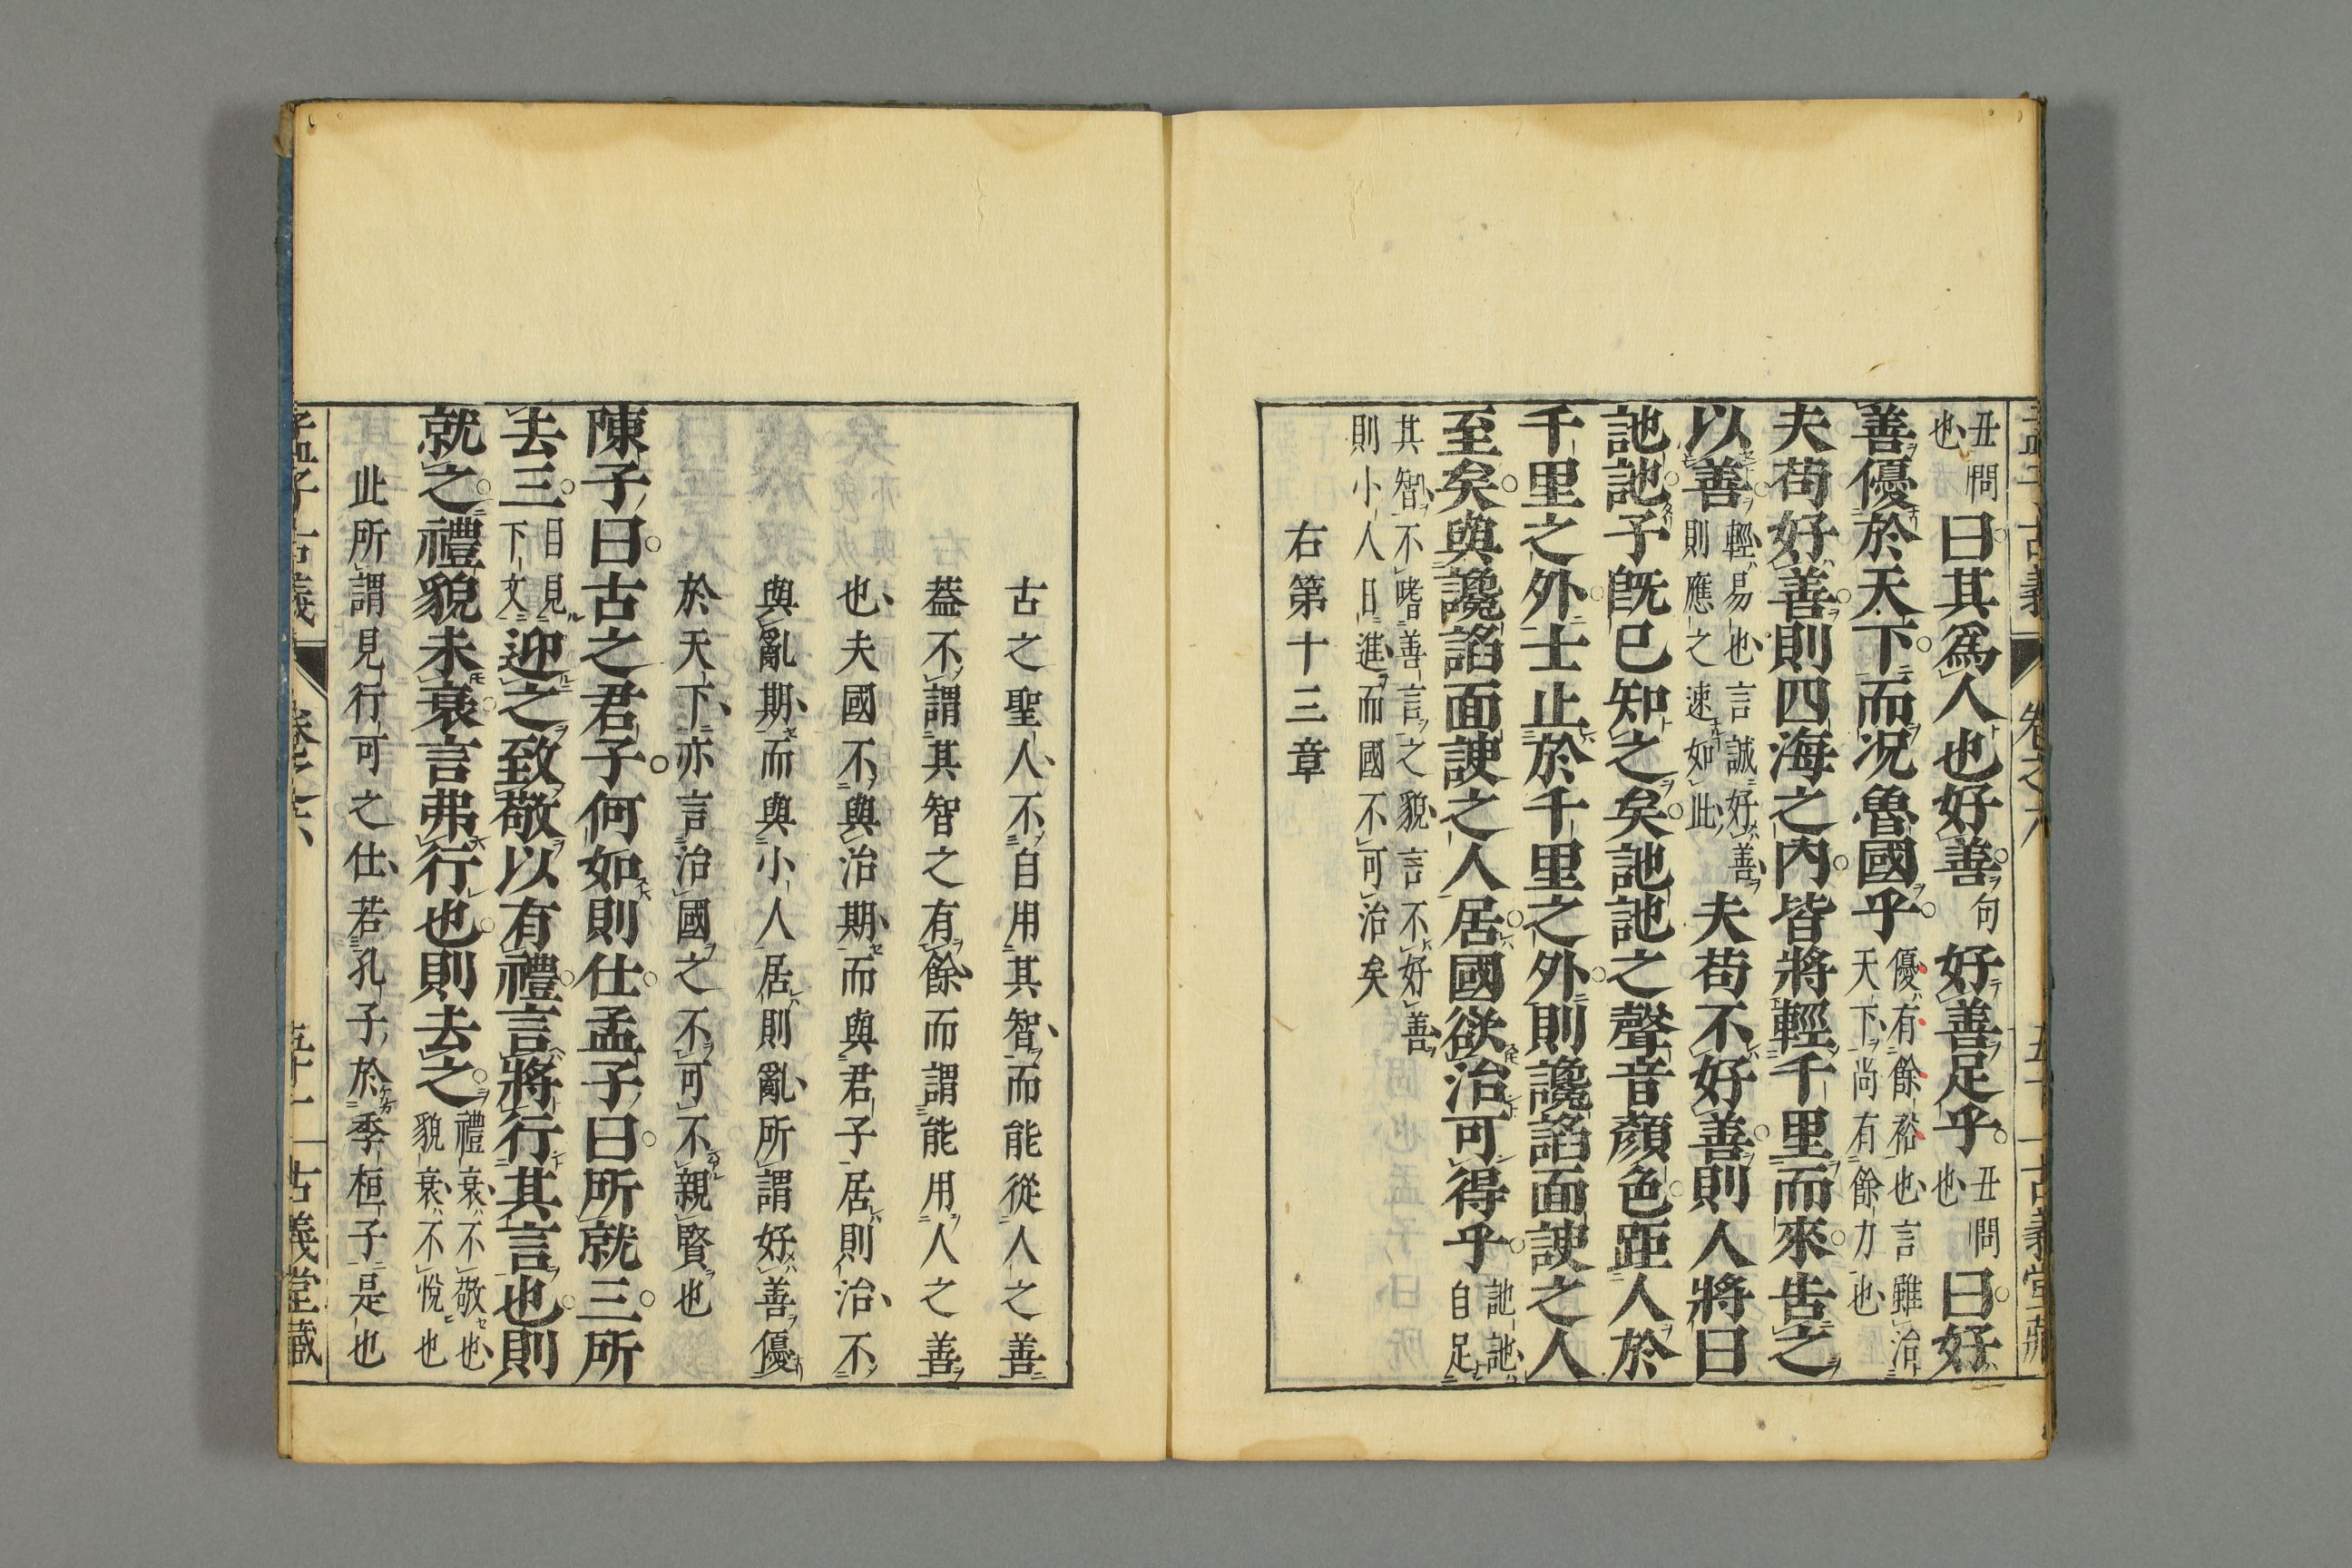 丑問也曰其爲人也好善句好善足乎丑問也曰好
善優於天下而况魯國乎優有餘裕也言雖治天下尚有餘力也
夫苟好善則四海之內皆將輕千里而來告之
以善輕易也言誠好善則應之速如此夫苟不好善則人將曰
訑訑予旣已知之矣訑訑之聲音顏色距人於
千里之外士止於千里之外則讒諂面諛之人
至矣與讒諂面諛之人居國欲治可得乎訑訑自足
其智不嗜善言之貌言不好善則小人日進而國不可治矣
右第十三章
古之聖人不自用其智而能從人之善
葢不謂其智之有餘而謂能用人之善
也夫國不與治期而與君子居則治不
與亂期而與小人居則亂所謂好善優
於天下亦言治國之不可不親賢也
陳子曰古之君子何如則仕孟子曰所就三所
去三目見下文迎之致敬以有禮言將行其言也則
就之禮貌未衰言弗行也則去之禮衰不敬也貌衰不悅也
此所謂見行可之仕若孔子於季桓子是也
孟子古義 卷之六 五十一 古義堂藏